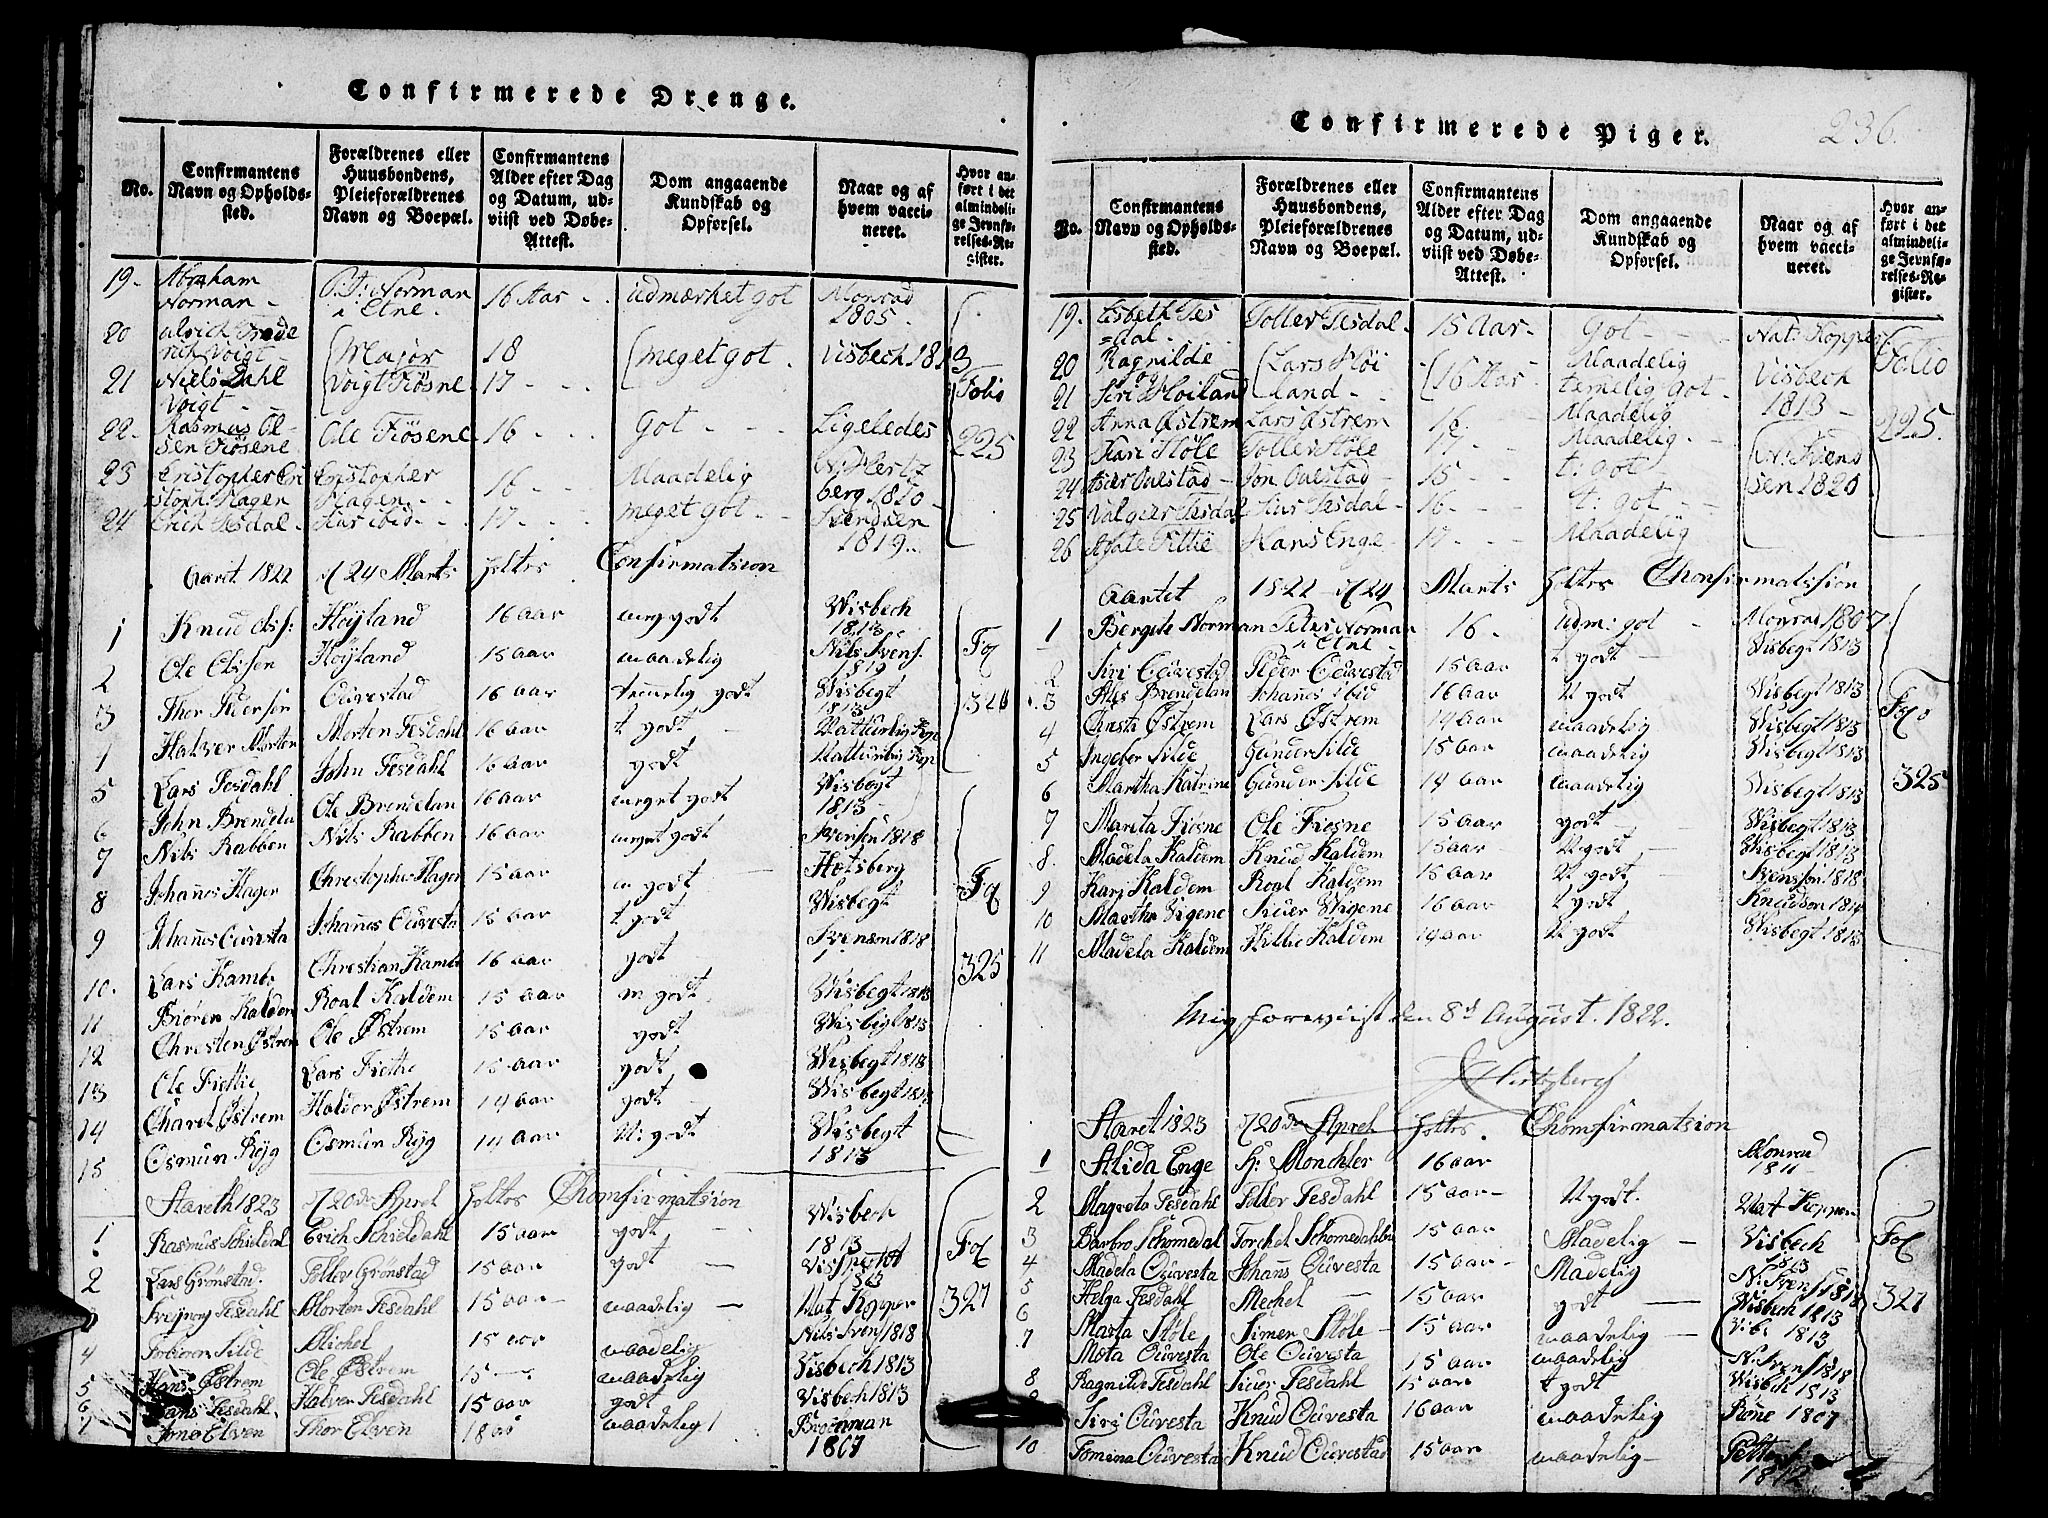 Confirmerede Drenge.
No.
Confirmantens Navn og Opholds-sted.
Forældrenes eller Huusbondens, Pleieforældrenes Navn og Boepæl.
Confirmantens Alder efter Dag og Datum, ud-viist ved Døbe-Attest.
Dom angaaende Kundskab og Opførsel.
Naar og af hvem vacci-neret.
Hvor an-ført i det almindeli-ge Jevnfø-relses-Re-gister.
19. Abraham Norman - P. T: Norman i Etne. 16 Aar - udmærket got Monrad 1805.
20 Ulrich Frede rich Voigt - Major 18 meget got. Visbech 1813
21 Niels Dahl Voigt - Voigt Fiøsne 17 - Folio
22. Rasmus Ol-sen Fiøsene Ole Fiøsene 16 - got - - Ligeledes 225
23 Cristopher Cri stoph. Hagen Cristopher Hagen 16 - - Maadelig Hertz berg 1810
24 Erich Tesdal - Siur ibid - 17 - meget got - Svendsen 1819.
Aaret 1822 d 24 Marts holtes Confirmatsion
1 Knud Høyland 16 aar meg godt Wisbech 1813
2 Ole Olssen Høyland 15 aar maadelig Nils Svens. 1819 Fol
3 Thor Pedersen Ouvestad 16 aar temmelig godt Wisbegt 1813 324
1 Halver Morten Morten Tesdahl 16 aar t godt Natturlig Kop
5 Lars Tesdahl John Tesdahl 16 aar godt Natturlig Kop
6 John Brendela Ole Brendelan 16 aar meget godt Wisbegt 1813
7 Nils Rabben Nils Rabben 16 aar meget godt Svensen 1818
8 Johanes Hagen Christopher Hagen 15 aar m godt Hetsberg
9 Johanes Ouvesta Johanes Ouvesta 15 aar t godt Wisbegt Fol
10. Lars Kambe Christian Kambe 16 aar godt Svensen 1818 325
11 Biøren Kaldem Roal Kaldem 15 aar m godt Wisbegt 1813
12 Christen Østrem Ole Østrem 15 aar godt Wisbegt 1813
13 Ole Fiettie Lars Fiettie 15 aar godt Wisbegt 1813
14 Charel Østrem Haldor Østrem 14 aar godt Wisbegt 1813
15 Osmun Ryg Osmun Ryg 14 aar godt Wisbegt 1813
Aareth 1823 d 20de Aprel holtes Chomfirmatsion
1 Rasmus Schieldal Erich Schieldahl 15 aar godt Wisbech 1813
2 Lars Grønstad. Tollev Grønstad 15 aar godt 1813 Fol
Tesdahl Morten Tesdahl 15 aar maadelig Nat Kopper 327
4 Silde Michel 15 aar maadelig Nils Sven 1818
5 Hans Østrem Ole Østrem 15 maadelig Visbech 1813
6 Hans Tesdahl. Halven Tesdahl 15 aar godt Visbech 1813
7 Elven Thor Elven 18 maadelig 1807
Confirmerede Piger.
236.
No.
Confirmantens Navn og Opholds-sted.
Forældrenes eller Huusbondens, Pleieforældrenes Navn og Boepæl.
Confirmantens Alder efter Dag og Datum, ud-viist ved Døbe-Attest.
Dom angaaende Kundskab og Opførsel.
Naar og af hvem vacci-neret.
Hvor an-ført i det almindeli-ge Jevnfø-relses-Re-gister.
19. Lisbeth Tes =dal. Tollev Tesdal. 15 Aar. Got - - Nat: Kopper
20 Ragnilde og Lars Høi 16 Aar Maadelig Visbech Folio
21 Siri Hoiland land - temelig Got 1813 -
22 Anna Østrem Lars Østrem 16. Maadelig 225.
23 Kari Støle Tollev Støle 17 - Maadelig N: Svend
24 Ouestad Jon Ouestad 15 - t: got sen 1820
25 Valgier Tesdal Siur Tesdal 16 - t: got -
26 Agate Fittie Hans Enge 17 - Maadelig
Aartet 1822 d 24 Marts holtes Chonfirmatision
1 Bergite Norman Peter Norman i Etne 16 - udm: got - Monrad 1807
2 Siri Ouvestad Peder Ouvestad 15 aar t godt Wisbegt 1813
3 Ales Brendelan Johanes ibid 16 aar godt Wisbegt 1813 Folio
4 Christa Østrem Lars Østrem 14 aar maadelig Wisbegt 1813
5 Ingeber Silde Gunder Silde 15 aar maadelig Wisbegt 1813
6 Martha Katrine Gunder Silde 14 aar maadelig Wisbegt 1813 325
7 Mareta Fiosne Ole Fiosne 15 aar godt Wisbegt 1813
8. Madela Kaldem Knud Kaldem 15 aar godt Wisbegt 1813
9 Kari Kaldem Roal Kaldem 15 aar godt Svenson 1818
10 Martha Vigene Siuer Vigene 16 aar t godt Knudson 1814
11 Madela Kaldem Killie Kaldem 14 aar godt Wisbegt 1813
Mig foreviist den 8de August. 1822.
Hertzberg
Aaret 1823 d 20de Aprel holtes. Chomfirmatsion
1 Alida Enge H: Monchler 16 aar Monrad 1811
2 Magreta Tesdahl Tolder Tesdahl 15 aar godt. Nat Kopper
3 Barbro Schomedal Torchel Schomedahl 15 aar Madelig Visbech 1813 Fol
4 Madela Ouvesta Johans Ouvesta 15 aar Madelig N: Svens 1818
5 Helga Tesdahl Mechel 15 aar godt Wisbech 1813 327
6 Marta Støle Simer Støle 15 aar maadelig Vibe 1813
7 Mota Ouvesta Ole Ouvesta 15 aar maadelig N: Svens 1818
8 Ragnilde Tesdahl Siuer Tesdahl 15 aar t godt Wisbech 1813
9 Siri Ouvesta Knud Ouvesta 16 aar maadelig Rone 1807
10 Tomina Ouvesta Knud Ouvestad 15 aar maadelig 1812